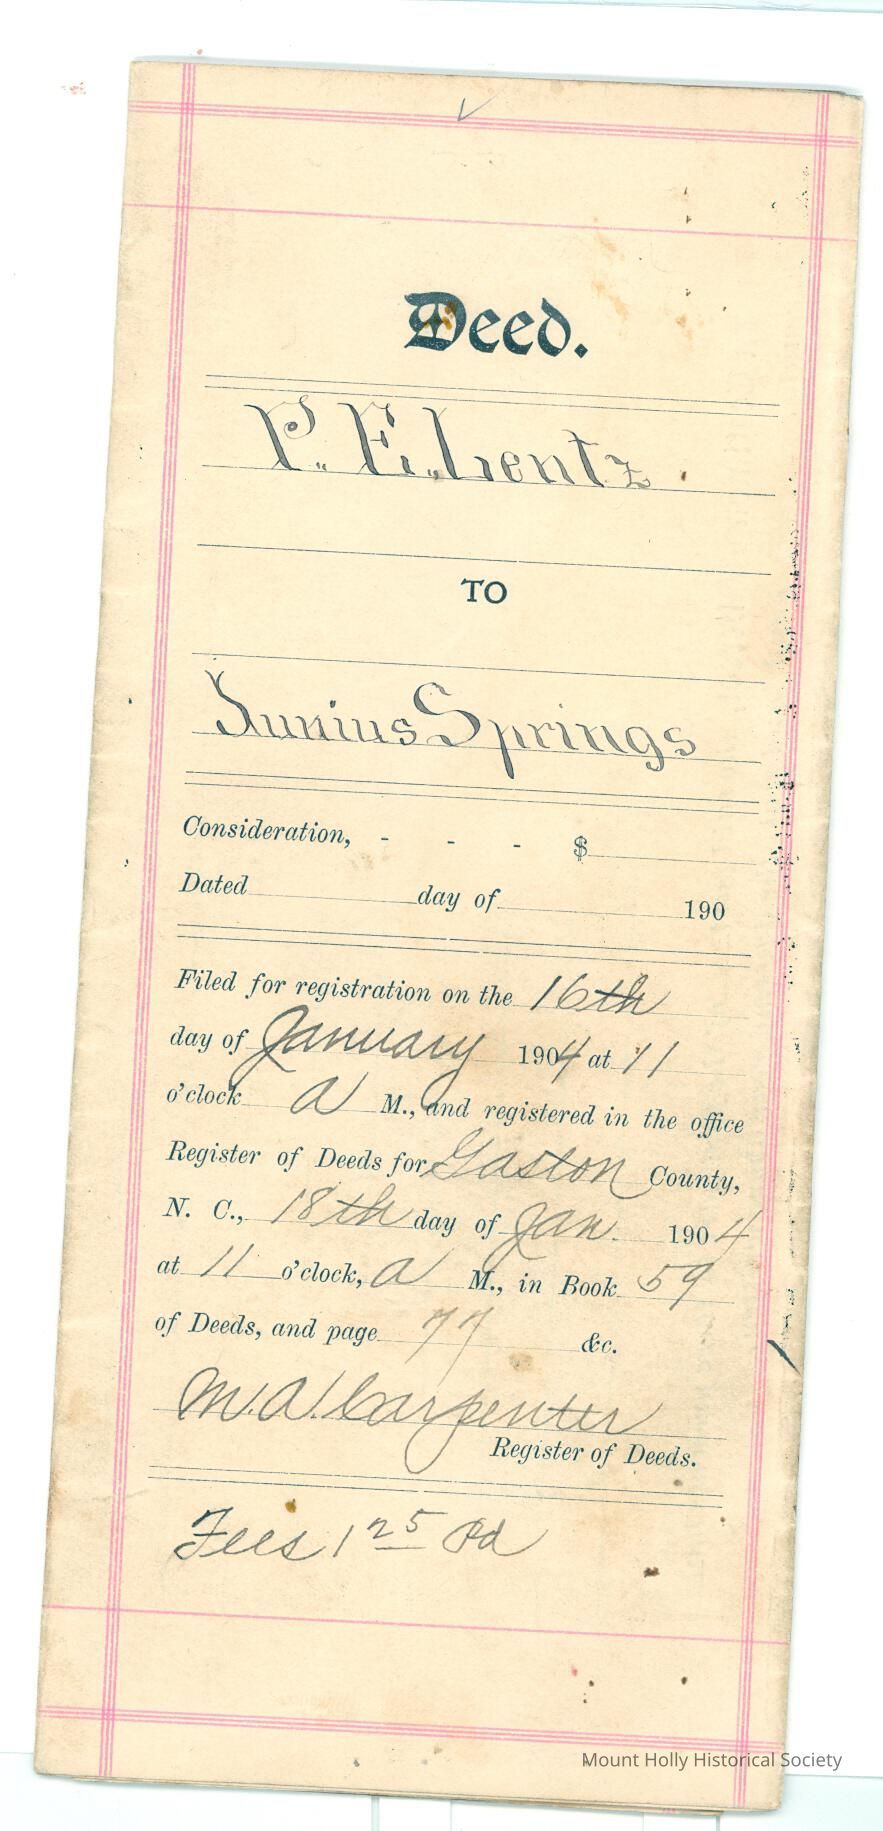 Deed.
P. E. Lentz
TO
Junius Springs
Consideration, - - - $
Dated day of 190
Filed for registration on the 16th
day of January 1904 at 11
o'clock A M., and registered in the office
Register of Deeds for Gaston County,
N. C., 18th day of Jan. 1904
at 11 o'clock, A M., in Book 59
of Deeds, and page 77 &c.
M. A. Carpenter
Register of Deeds.
Fees 1 25 Pd
Mount Holly Historical Society